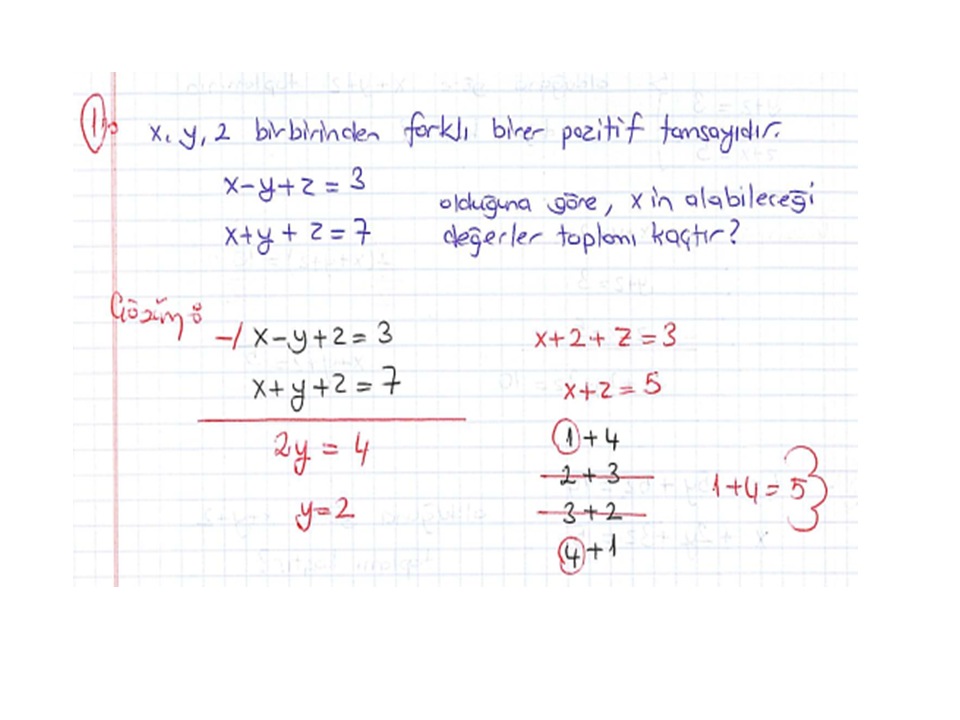 1) x, y, z birbirinden farklı birer pozitif tamsayıdır.
x-y+z=3
x+y+z=7
olduğuna göre, x in alabileceği
değerler toplamı kaçtır?
Çözüm:
-/ x-y+z=3
x+y+z=7
2y=4
y=2
x+2+z=3
x+z=5
1+4
2+3
3+2
4+1
1+4=5